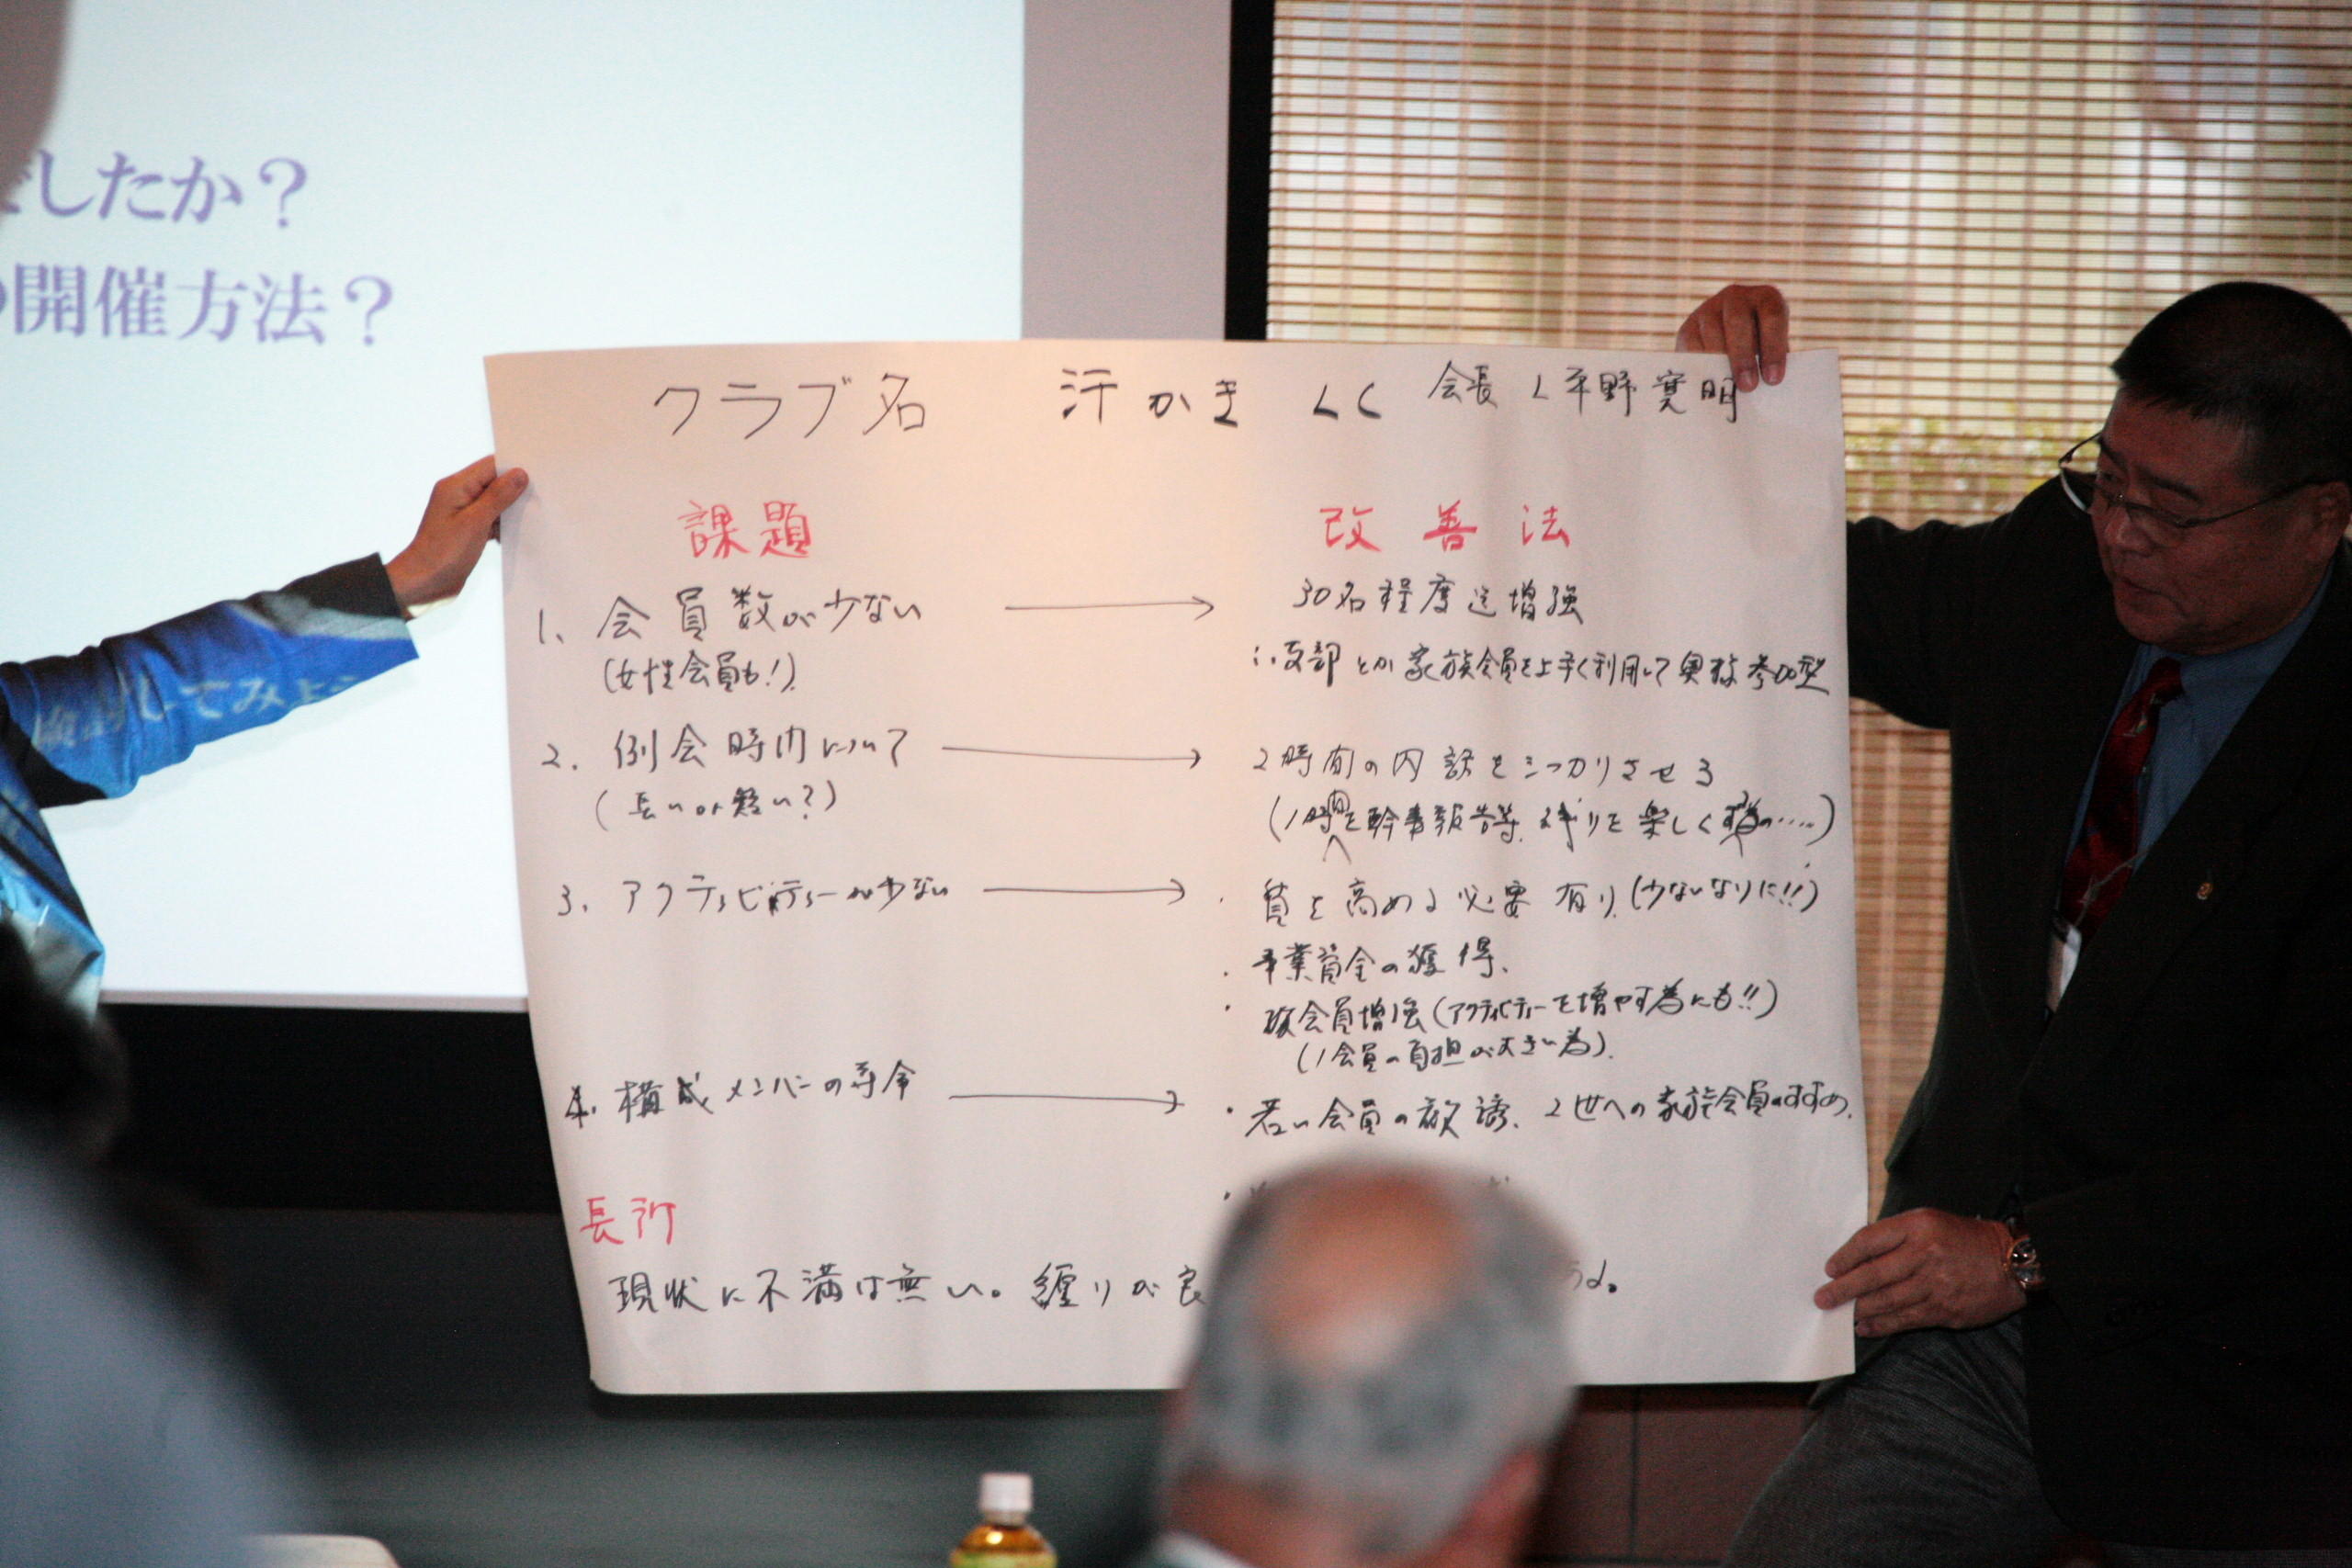 したか？
開催方法？
してみよう
クラブ名 汗かき LC 会長 L平野寛明
課題 改善法
1、会員数が少ない → 30名程度迄増強
(女性会員も!) 支部とか家族会員を上手く利用して奥様参加型
2. 例会時間について → 2時間の内訳をシッカリさせる
(長いor短い?) (1時間を幹事報告等、残りを楽しく
3. アクティビティーが少ない → ・質を高める必要有り(少ないなりに!!)
・事業資金の獲得、
・故会員増強(アクティビティーを増やす為にも!!)
(1会員の負担が大きい為).
4. 構成メンバーの寿命 → ・若い会員の勧誘、2世への家族会員のすすめ、
長所
現状に不満は無い。纏りが良